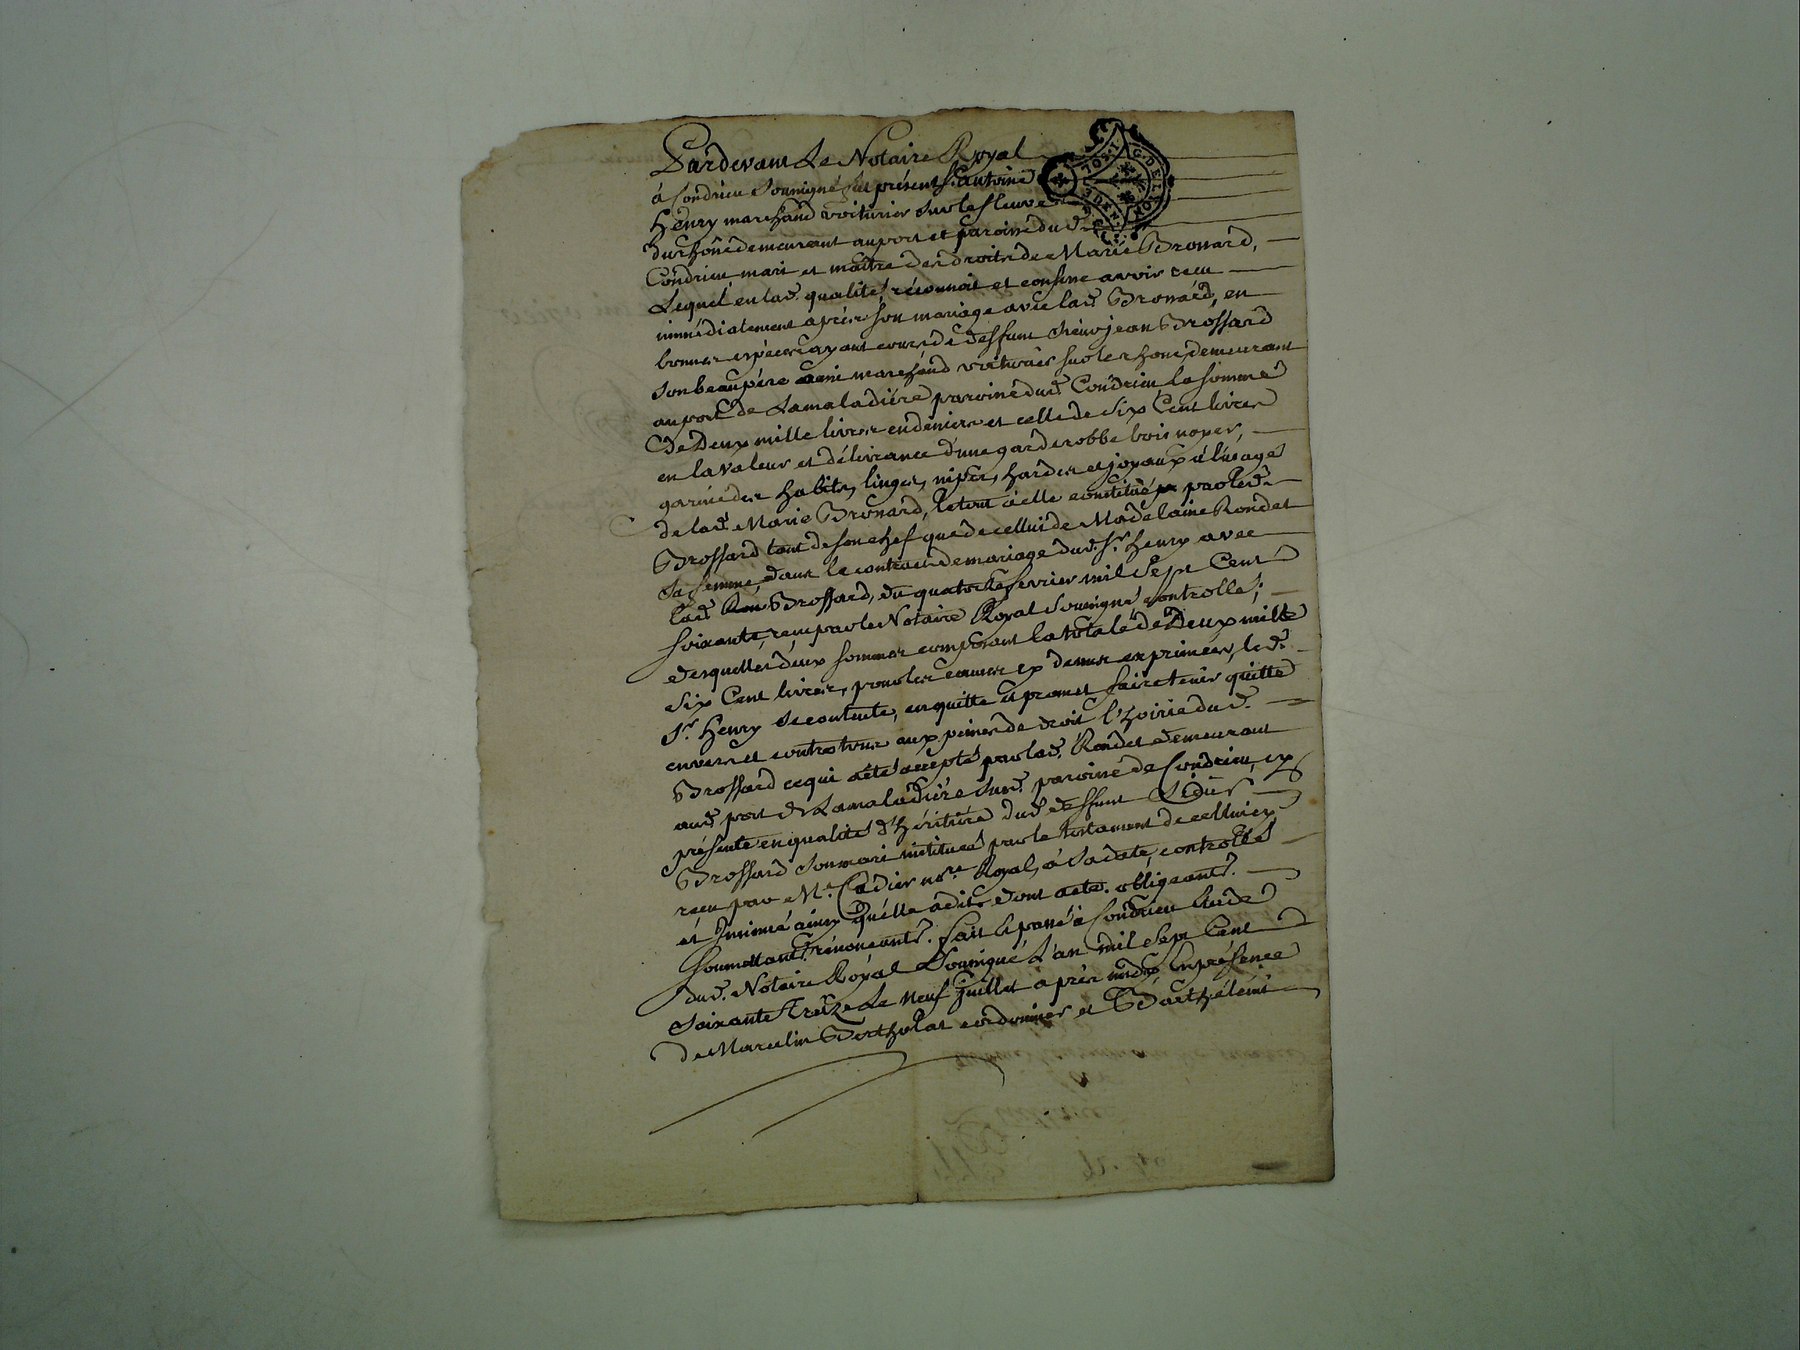 Pardevant Le Notaire Royal
à Condrieu Soussigné fut présent Sr. Antoine
Henry marchand voiturier sur le fleuve
du rhône demeurant au port et paroisse dud.
Condrieu, mari et maître des droits de Marie Brossard,
Lequel, en lad. qualité, réconnoit et confesse avoir reçu
immédiatement après son mariage avec lad. Brossard, en
bonnes espèces ayant cours de deffunt Sieur jean Brossard
son beaupére marchand voiturier sur le rhone, demeurant
au port de Lamaladiére paroisse dud. Condrieu la somme
De Deux mille livres en deniers et celle de Six Cent livres
en la valeur et délivrance d'une garderobbe bois noyer,
garnie des habits, linges, nipes, hardes et joyaux à l'usage
de lad. Marie Brossard, le tout à elle constitué par led.
Brossard tant de son chef que de cellui de Madelaine Rondet
sa femme, dans le contract de mariage dud. Sr. Henry avec
lad. Brossard, du quatorze fevrier mil Sept Cent
soixante, reçu par le Notaire Royal Soussigné, controllé;
desquelles deux sommes composant la totale de Deux mille
Six Cent livres, pour les causes cy dessus exprimées, le d.
Sr. Henry se contente, en quitte et promet faire tenir quitte
envers et contre tous aux peines de droit l'hoirie dud.
Brossard ce qui a été accepté par lad. Rondet demeurant
aud. port de Lamaladiére sud. paroisse de Condrieu, cy
présente en qualité d'héritiére dud. deffunt Sieur
Brossard son mari instituée par le testament de celluicy
reçu par Me. Cadier nore. Royal, à sa date, controllé
et Insinué ainsy qu'elle a dit. dont acte. obligeants.
soumettants. rénonceants. fait et passé à Condrieu Etude
dud. Notaire Royal Soussigné L'an mil Sept Cent
Soixante Treize Le Neuf Juillet après midy En présence
de Marcelin Bertholat cordonnier et Barthélémi